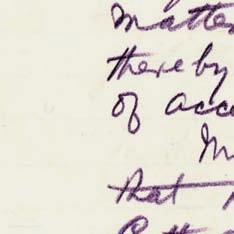 Matte
thereby
of acc
M
that